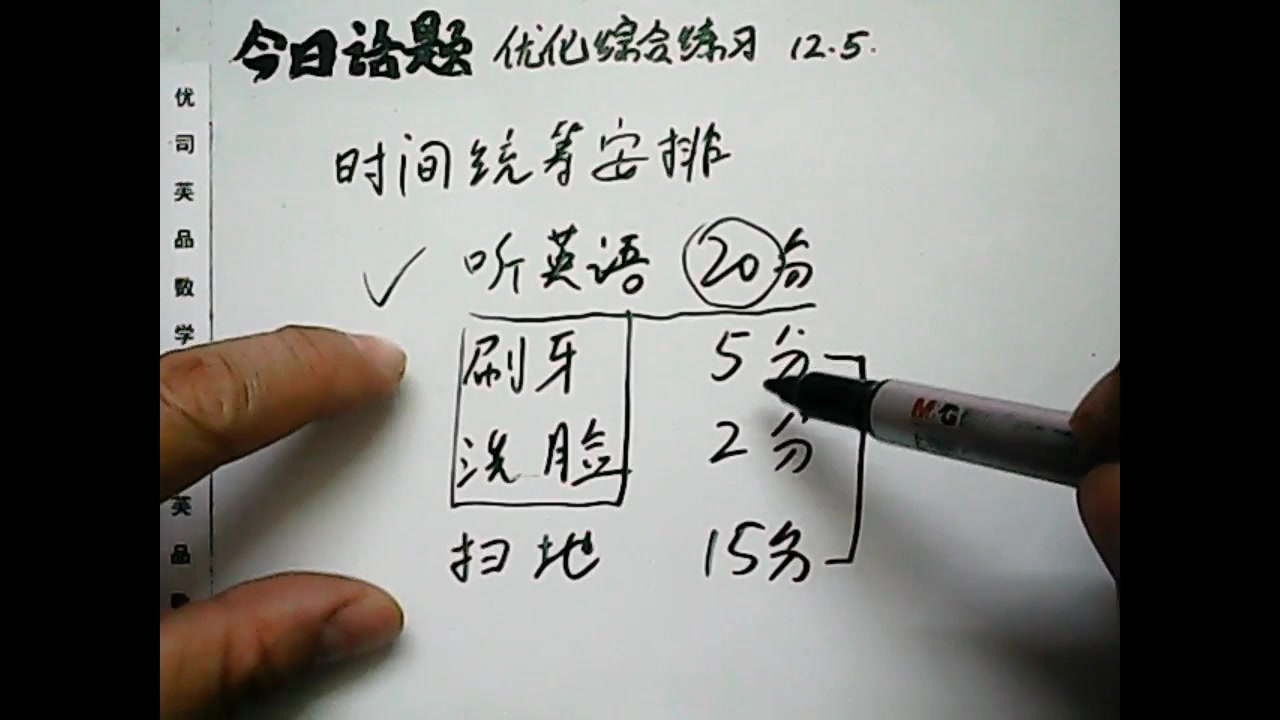 今日话题 优化综合练习 12.5.
时间统筹安排
✓ 听英语 20分
刷牙 5分
洗脸 2分
扫地 15分
优司英品数学
英品
M&G